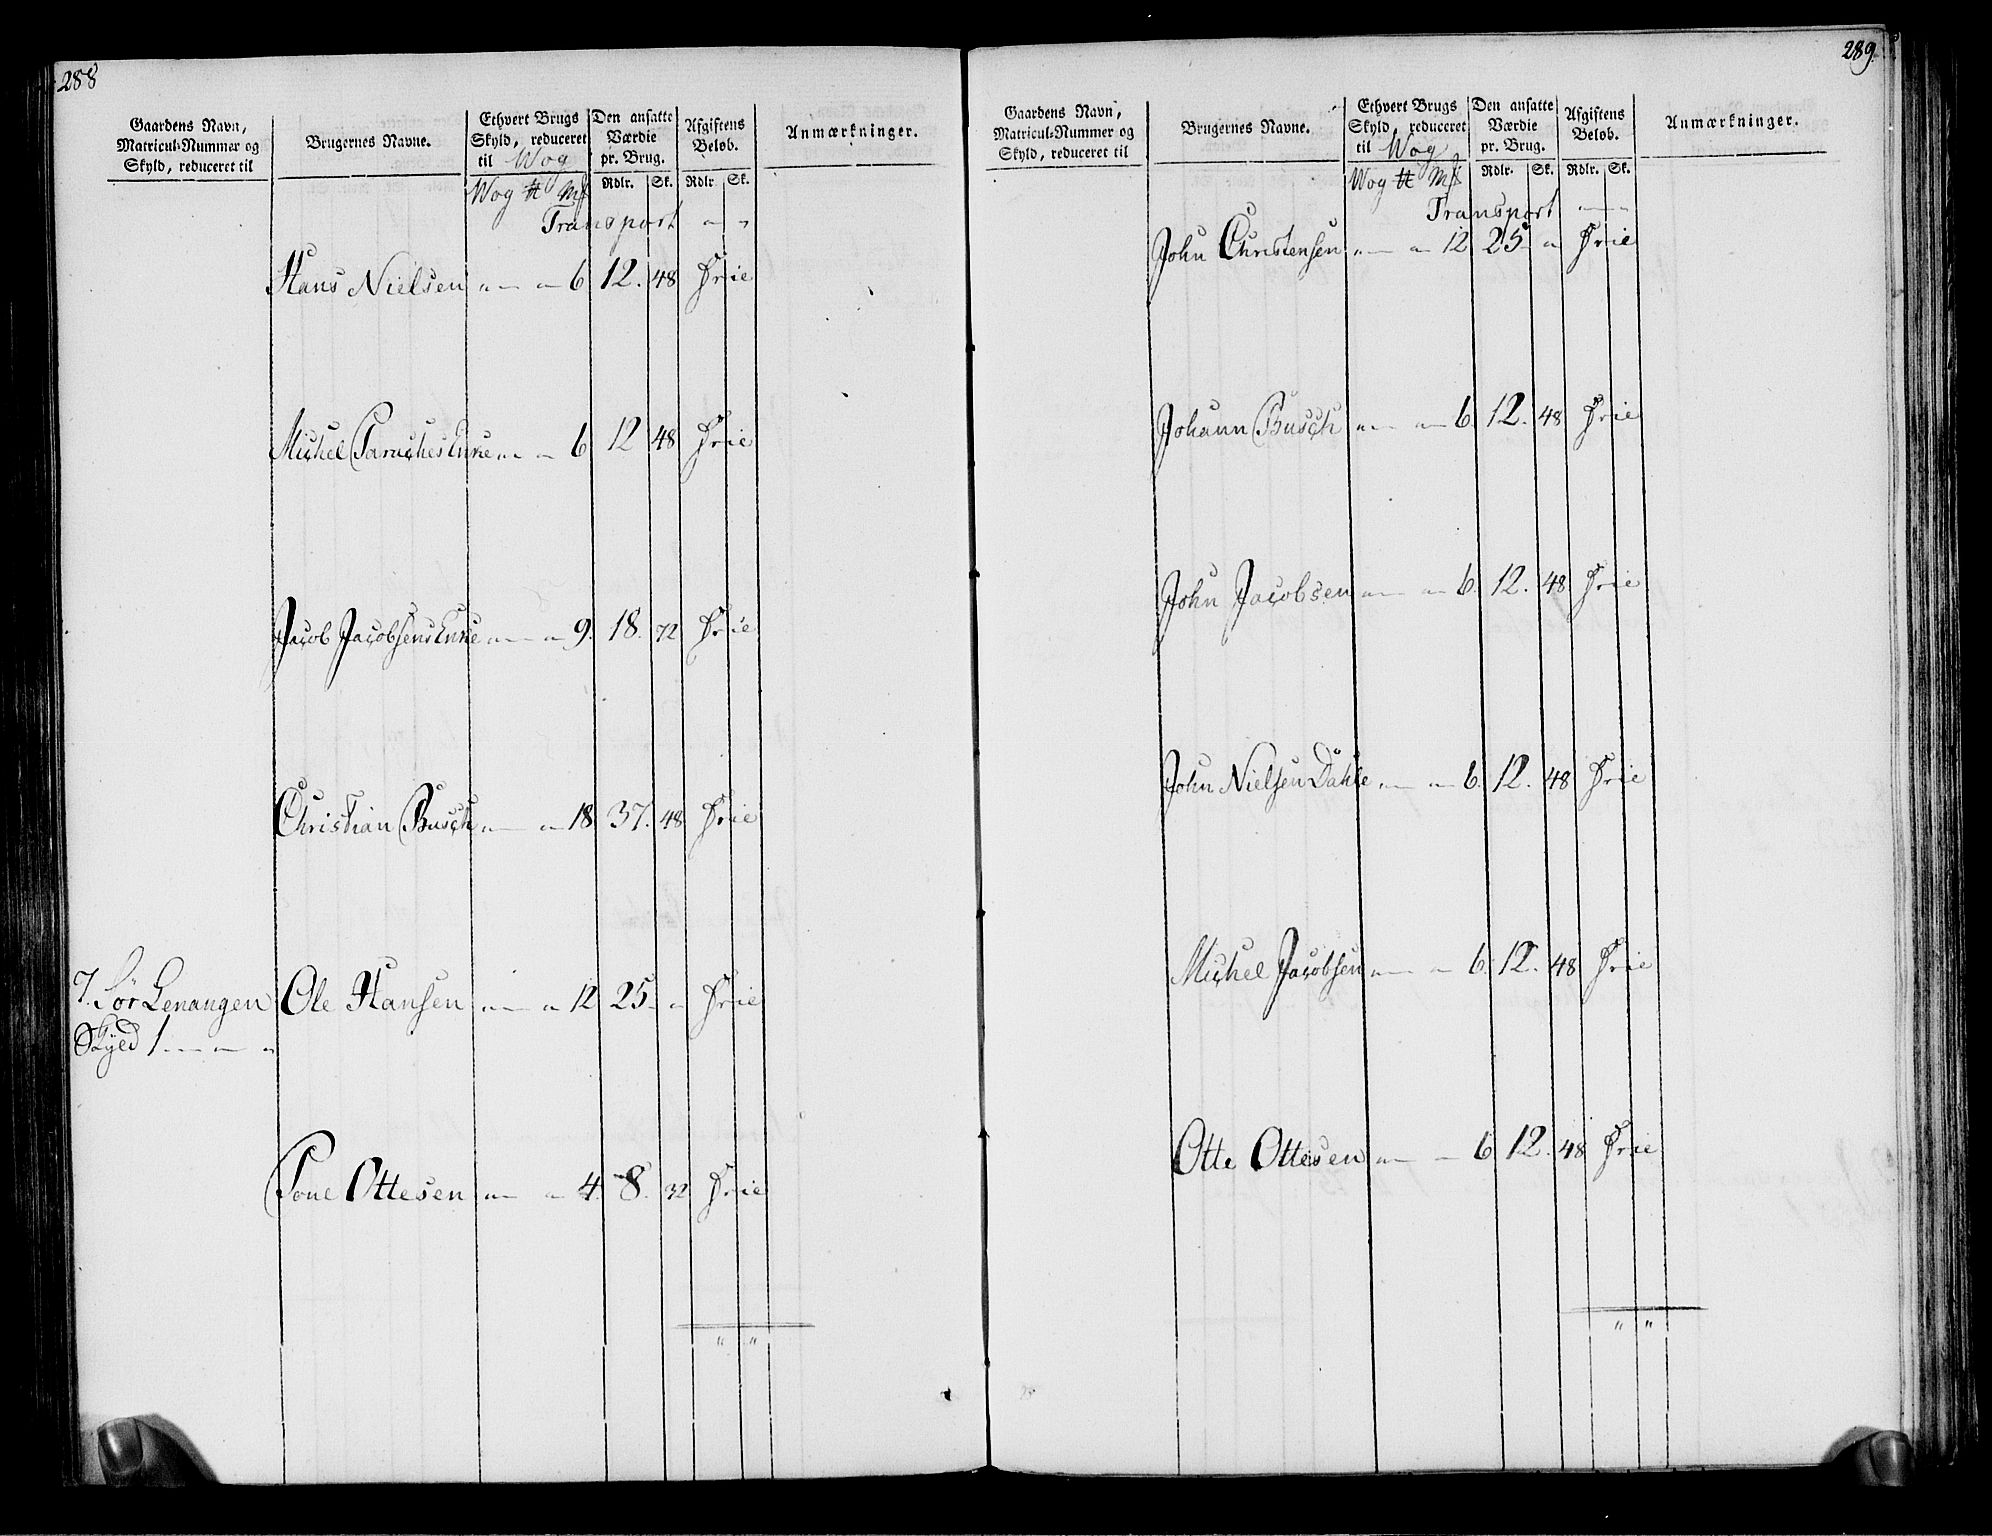 288
Gaardens Navn, Matricul-Nummer og Skyld, reduceret til
Brugernes Navne.
Ethvert Brugs Skyld, reduceret til Wog
Den ansatte Værdie pr. Brug.
Afgiftens Beløb.
Anmærkninger.
Wog ℔ Mk Rdlr. Sk. Rdlr. Sk.
Transport " "
Hans Nielsen " — " 6 12. 48 Frie
Michel Enke " — " 6 12 48 Frie
Jacob Jacobsens Enke " — " 9. 18. 72 Frie
Christian Busch " — " 18 37. 48 Frie
7. Sør Lenangen Ole Hansen " — " 12 25 " Frie
Skyld 1 — — "
Pone Ottesen " — " 4. 8. 32 Frie
" "
289.
Gaardens Navn, Matricul-Nummer og Skyld, reduceret til
Brugernes Navne.
Ethvert Brugs Skyld, reduceret til Wog
Den ansatte Værdie pr. Brug.
Afgiftens Beløb.
Anmærkninger.
Wog ℔ Mk Rdlr. Sk. Rdlr. Sk.
Transport " — "
John Christensen " — " 12 25 " Frie
Johann Busch " — " 6. 12. 48 Frie
John Jacobsen " — " 6. 12. 48 Frie
John Nielsen Dahle " — " 6. 12. 48 Frie
Michel Jacobsen " — " 6. 12. 48 Frie
Otte Ottesen " — " 6 12. 48 Frie
" "